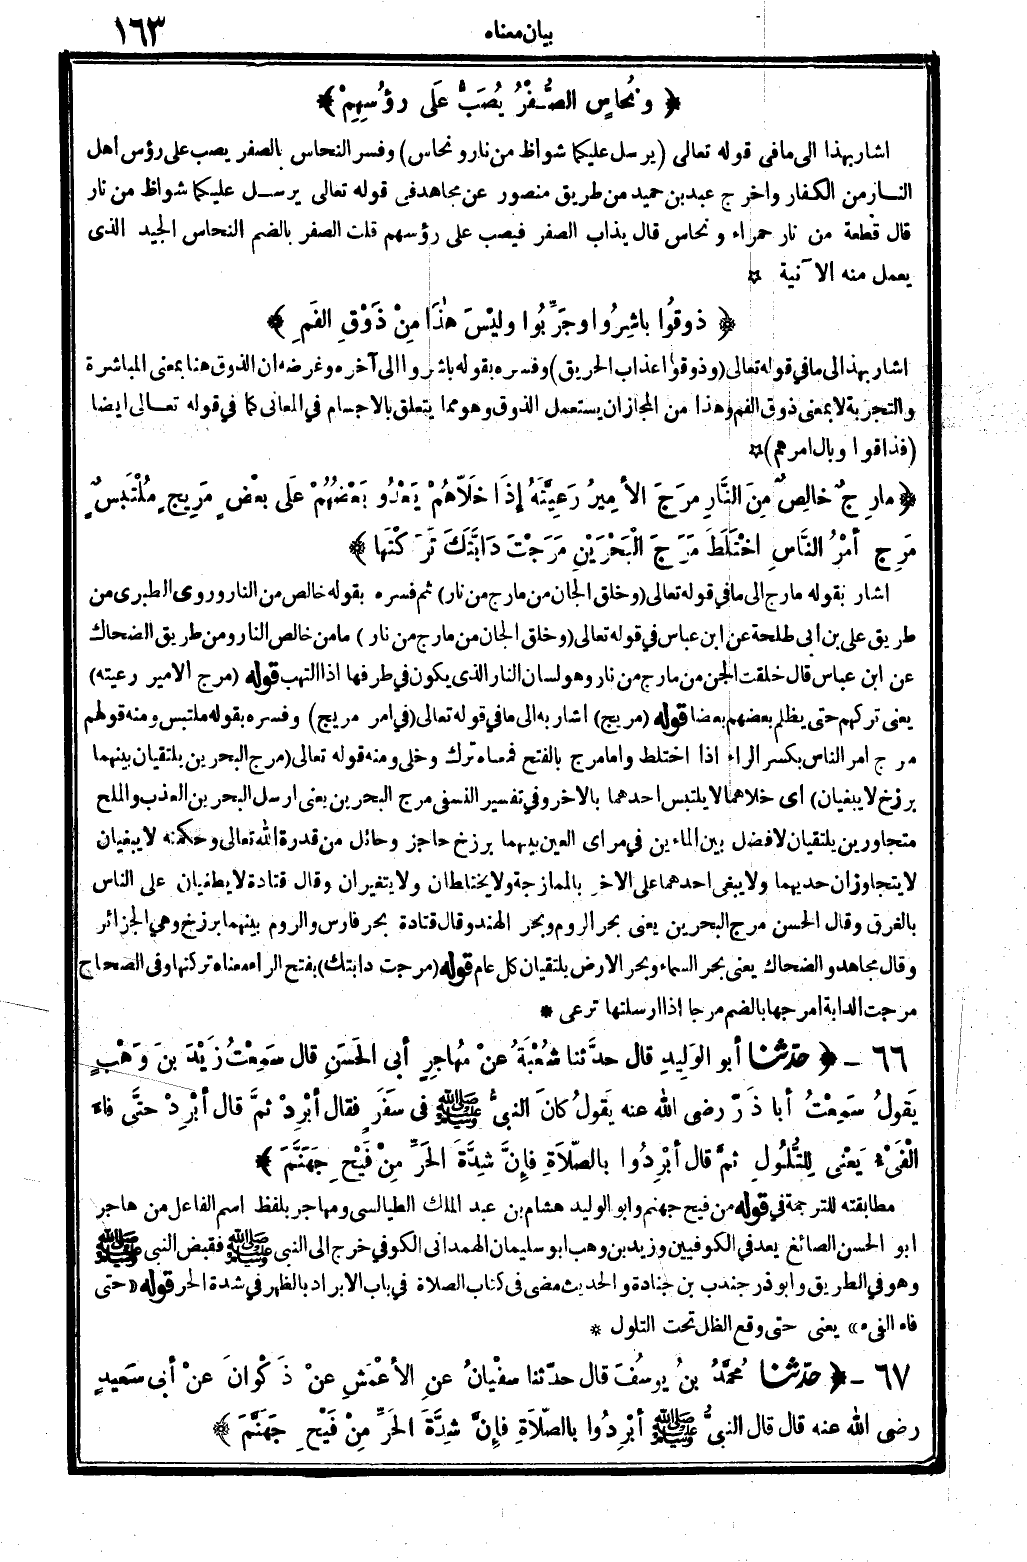 بيان معناه ١٦٣
﴿ ونُحَاسٍ الصُّفْرُ يُصَبُّ عَلَى رُؤُسِهِمْ ﴾
اشار بهذا الى ما فى قوله تعالى (يرسل عليكما شواظ من نار ونحاس) وفسر النحاس بالصفر يصب على رؤس أهل
النار من الكفار واخرج عبد بن حميد من طريق منصور عن مجاهد فى قوله تعالى يرسل عليكما شواظ من نار
قال قطعة من نار حمراء ونحاس قال يذاب الصفر فيصب على رؤسهم قلت الصفر بالضم النحاس الجيد الذى
يعمل منه الآنية ✩
﴿ ذوقُوا باشِرُوا وجَرِّبُوا وليْسَ هذَا مِنْ ذَوْقِ الفَمِ ﴾
اشار بهذا الى ما في قوله تعالى (وذوقوا عذاب الحريق) وفسره بقوله باشروا الى آخره وغرضه ان الذوق هنا بمعنى المباشرة
والتجربة لا بمعنى ذوق الفم وهذا من المجاز ان يستعمل الذوق وهو مما يتعلق بالاجسام في المعانى كما في قوله تعالى ايضا
(فذاقوا وبال امرهم) ✩
﴿ مارِجٌ خالِصٌ مِنَ النَّارِ مرَجَ الأمِيرُ رَعِيَّتَهُ إذَا خَلَّاهُمْ يَعْدُو بَعْضُهُمْ عَلَى بعْضٍ مَرِيجٍ مُلْتَبِسٌ
مَرِجَ أمْرُ النَّاسِ اخْتَلَطَ مَرَجَ الْبَحْرَيْنِ مَرَجْتَ دَابَّتَكَ تَرَكْتَها ﴾
اشار بقوله مارج الى ما في قوله تعالى (وخلق الجان من مارج من نار) ثم فسره بقوله خالص من النار وروى الطبرى من
طريق على بن ابى طلحة عن ابن عباس في قوله تعالى (وخلق الجان من مارج من نار) ما من خالص النار ومن طريق الضحاك
عن ابن عباس قال خلقت الجن من مارج من نار وهو لسان النار الذى يكون في طرفها اذا التهب قوله (مرج الامير رعيته)
يعنى تركهم حتى يظلم بعضهم بعضا قوله (مريج) اشار به الى ما في قوله تعالى (في امر مريج) وفسره بقوله ملتبس ومنه قولهم
مرج امر الناس بكسر الراء اذا اختلط واما مرج بالفتح فمعناه ترك وخلى ومنه قوله تعالى (مرج البحرين يلتقيان بينهما
برزخ لا يبغيان) اى خلاهما لا يلتبس احدهما بالآخر وفي تفسير النسفى مرج البحرين يعنى ارسل البحرين العذب والملح
متجاورين يلتقيان لا فضل بين الماءين في مراى العين بينهما برزخ حاجز وحائل من قدرة الله تعالى وحكمته لا يبغيان
لا يتجاوزان حديهما ولا يبغى احدهما على الآخر بالممازجة ولا يختلطان ولا يتغيران وقال قتادة لا يطغيان على الناس
بالغرق وقال الحسن مرج البحرين يعنى بحر الروم وبحر الهند وقال قتادة بحر فارس والروم بينهما برزخ وهى الجزائر
وقال مجاهد والضحاك يعنى بحر السماء وبحر الارض يلتقيان كل عام قوله (مرجت دابتك) بفتح الراء معناه تركتها وفى الصحاح
مرجت الدابة امرجها بالضم مرجا اذا ارسلتها ترعى *
٦٦ - ﴿ حدّثنا أبو الوَلِيدِ قال حدَّثنا شُعْبَةُ عنْ مُهاجِرٍ أبى الحَسَنِ قال سَمِعْتُ زَيْدَ بنَ وَهْبٍ
يَقولُ سَمِعْتُ أبا ذَرّ رضى الله عنه يَقولُ كانَ النبىُّ ﷺ فى سَفَرٍ فقال أبْرِدْ ثمَّ قال أبْرِدْ حتَّى فاءَ
الْفَىْءُ يَعْنى لِلتُّلُولِ ثمَّ قال أبْرِدُوا بالصَّلاةِ فإنَّ شِدَّةَ الحَرِّ مِنْ فَيْحِ جهَنَّمَ ﴾
مطابقته للترجمة في قوله من فيح جهنم وابو الوليد هشام بن عبد الملك الطيالسى ومهاجر بلفظ اسم الفاعل من هاجر
ابو الحسن الصائغ يعد في الكوفيين وزيد بن وهب ابو سليمان الهمدانى الكوفي خرج الى النبى ﷺ فقبض النبى ﷺ
وهو في الطريق وابو ذر جندب بن جنادة والحديث مضى فى كتاب الصلاة في باب الابراد بالظهر في شدة الحر قوله «حتى
فاء الفىء» يعنى حتى وقع الظل تحت التلول *
٦٧ - ﴿ حدّثنا مُحمَّدُ بنُ يوسُفَ قال حدّثنا سفْيانُ عنِ الأعْمَشِ عنْ ذَكْوانَ عنْ أبى سَعيدٍ
رضى الله عنه قال قال النبىُّ ﷺ أبْرِدُوا بالصَّلاةِ فإنَّ شِدَّةَ الحَرِّ مِنْ فَيْحِ جَهَنَّمَ ﴾